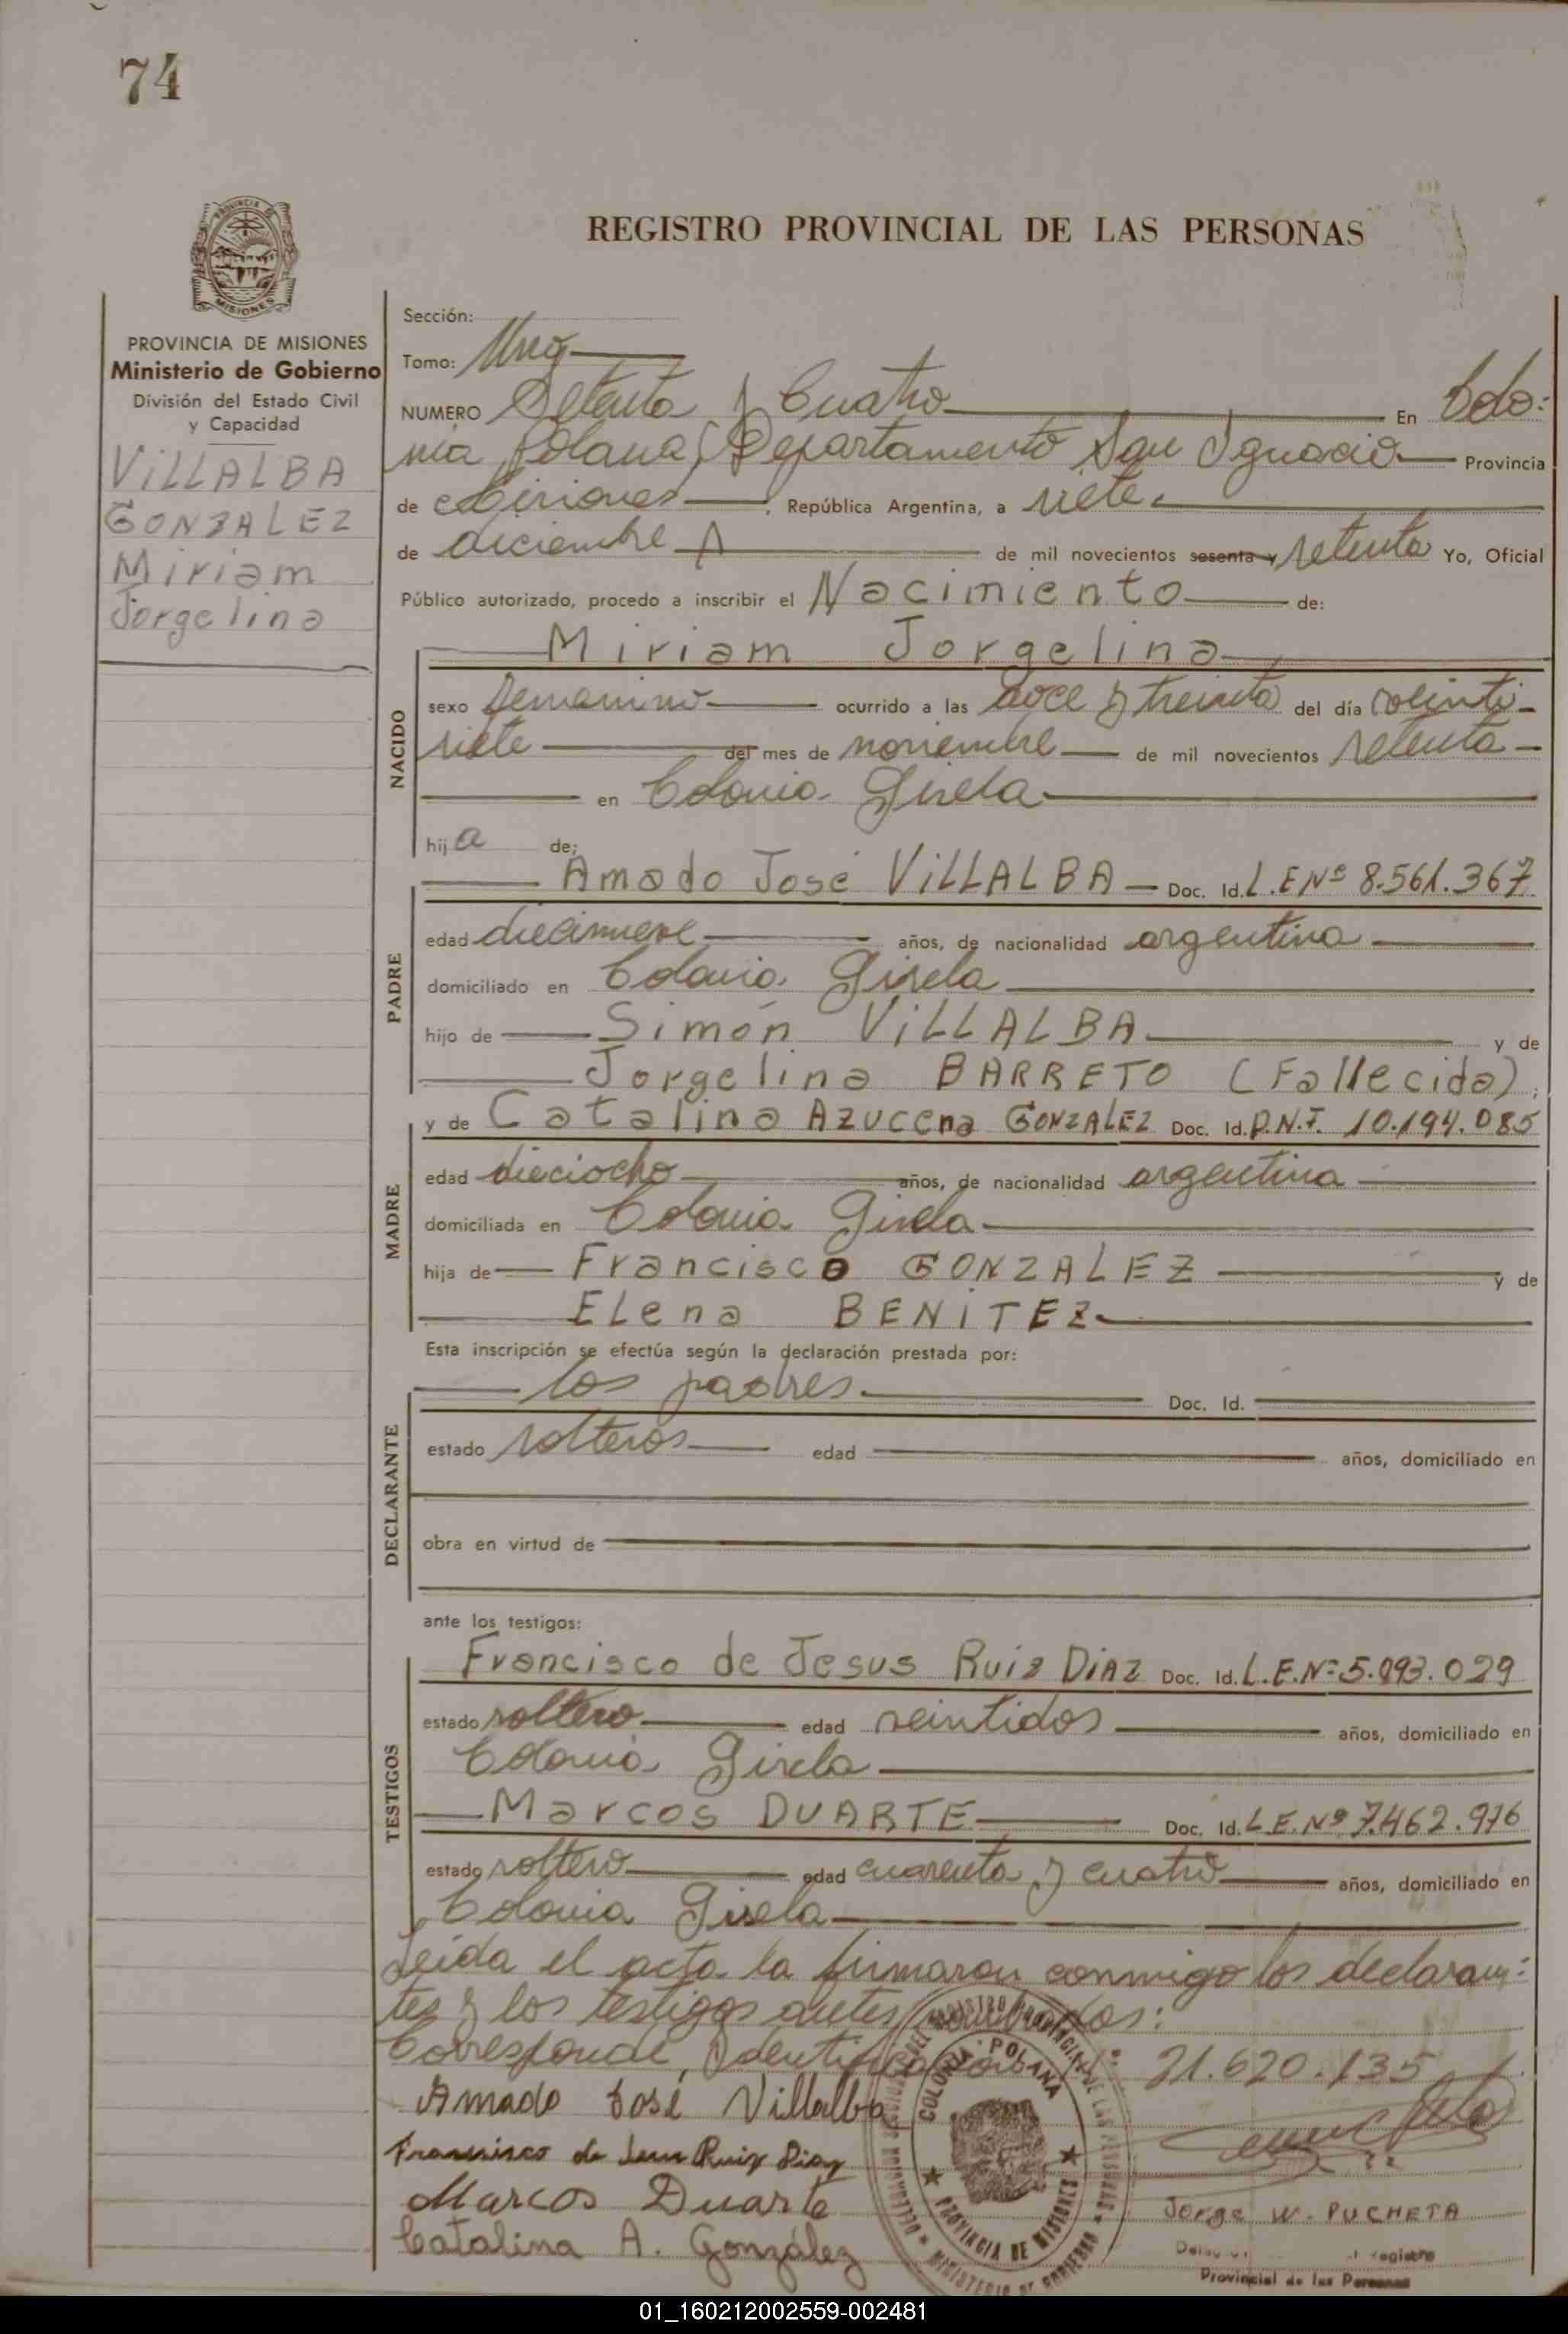 74
REGISTRO PROVINCIAL DE LAS PERSONAS
PROVINCIA DE MISIONES
Ministerio de Gobierno
División del Estado Civil
y Capacidad
VILLALBA
GONZALEZ
Miriam
Jorgelina
Sección:
Tomo: Uno
NUMERO Setenta y Cuatro En Colo-
nia Polana, Departamento San Ignacio Provincia
de Misiones, República Argentina, a siete
de diciembre de mil novecientos sesenta y setenta Yo, Oficial
Público autorizado, procedo a inscribir el Nacimiento de:
Miriam Jorgelina
NACIDO
sexo femenino ocurrido a las doce y treinta del día veinti-
siete del mes de noviembre de mil novecientos setenta
en Colonia Gisela
hija de:
PADRE
Amado José VILLALBA Doc. Id. L.E Nº 8.561.367
edad diecinueve años, de nacionalidad argentina
domiciliado en Colonia Gisela
hijo de Simón VILLALBA y de
Jorgelina BARRETO (Fallecida);
MADRE
y de Catalina Azucena GONZALEZ Doc. Id. D.N.I. 10.194.085
edad dieciocho años, de nacionalidad argentina
domiciliada en Colonia Gisela
hija de Francisco GONZALEZ y de
ELena BENITEZ
Esta inscripción se efectúa según la declaración prestada por:
DECLARANTE
los padres Doc. Id.
estado solteros edad años, domiciliado en
obra en virtud de
ante los testigos:
TESTIGOS
Francisco de Jesus Ruiz DIAZ Doc. Id. L.E.Nº 5.093.029
estado soltero edad veintidos años, domiciliado en
Colonia Gisela
Marcos DUARTE Doc. Id. L.E.Nº 7.462.976
estado soltero edad cuarenta y cuatro años, domiciliado en
Colonia Gisela
Leida el acta la firmaron conmigo los declaran-
tes y los testigos antes nombrados:
Corresponde, Identificación: 21.620.135
Amado José Villalba
Francisco de Jesus Ruiz Diaz
Marcos Duarte
Catalina A. González
COLONIA POLANA
PROVINCIA DE MISIONES
Jorge W. PUCHETA
Registro
Provincial de las Personas
01_160212002559-002481